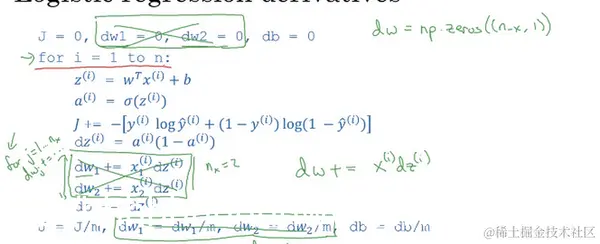 Logistic regression derivatives
J = 0, dw1 = 0, dw2 = 0, db = 0
dw = np.zeros((n-x, 1))
→ for i = 1 to n:
z⁽ⁱ⁾ = wᵀx⁽ⁱ⁾ + b
a⁽ⁱ⁾ = σ(z⁽ⁱ⁾)
J += −[y⁽ⁱ⁾ log ŷ⁽ⁱ⁾ + (1 − y⁽ⁱ⁾) log(1 − ŷ⁽ⁱ⁾)]
dz⁽ⁱ⁾ = a⁽ⁱ⁾(1 − a⁽ⁱ⁾)
for j=1...nₓ
dwⱼ += ...
dw₁ += x₁⁽ⁱ⁾ dz⁽ⁱ⁾
dw₂ += x₂⁽ⁱ⁾ dz⁽ⁱ⁾
nₓ = 2
dw += x⁽ⁱ⁾dz⁽ⁱ⁾
db += dz⁽ⁱ⁾
J = J/m, dw₁ = dw₁/m, dw₂ = dw₂/m, db = db/m
@稀土掘金技术社区